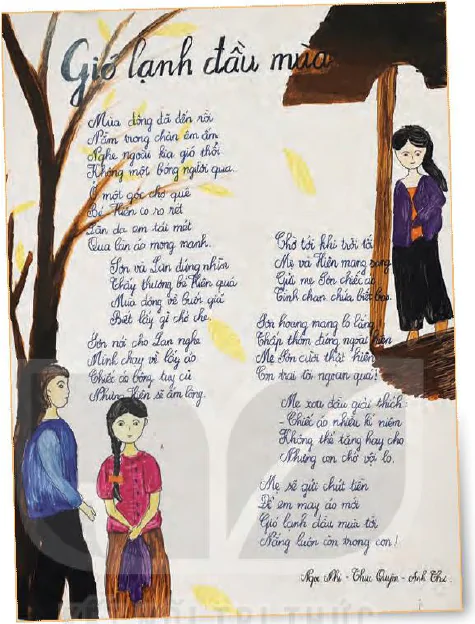 Gió lạnh đầu mùa
Mùa đông đã đến rồi
Nằm trong chăn êm ấm
Nghe ngoài kia gió thổi
Không một bóng người qua.
Ở một góc chợ quê
Bé Hiên co ro rét
Làn da em tái mét
Qua làn áo mong manh.
Sơn và Lan đứng nhìn
Thấy thương bé Hiên quá
Mùa đông về buốt giá
Biết lấy gì chở che
Sơn nói cho Lan nghe
Mình chạy về lấy áo
Chiếc áo bông tuy cũ
Nhưng Hiên sẽ ấm lòng.
Chờ tới khi trời tối
Mẹ và Hiên mang sang
Gửi mẹ Sơn chiếc áo
Tình chan chứa biết bao.
Sơn hoang mang lo lắng
Thấp thỏm đứng ngoài hiên
Mẹ Sơn cười thật hiền
Con trai tôi ngoan quá!
Mẹ xoa đầu giải thích:
- Chiếc áo nhiều kỉ niệm
Không thể tặng hay cho
Nhưng con chớ vội lo.
Mẹ sẽ gửi chút tiền
Để em may áo mới
Gió lạnh đầu mùa tới
Nắng luôn còn trong con!
Ngọc Nhi - Thục Quyên - Anh Thư
KẾT NỐI TRI THỨC